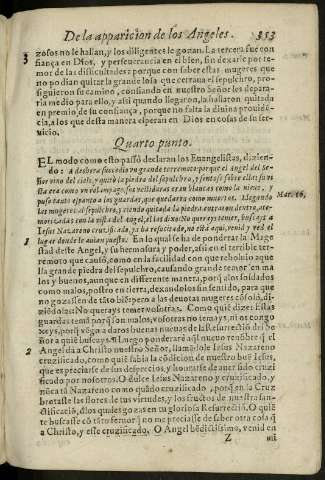 De la apparicion de los Angeles. 353
zosos no le hallan, y los diligentes le gozan. La tercera fue con
3 fiança en Dios, y perseuerancia en el bien, sin dexarle por te-
mor de las difficultades: porque con saber estas mugeres que
no podian quitar la grande losa que cerraua el sepulchro, pro-
siguieron su camino, confiando en nuestro Señor les depara-
ria medio para ello, y assi quando llegaron, la hallaron quitada
en premio de su confiança, porque no falta la diuina prouidē-
cia, a los que desta manera esperan en Dios en cosas de su ser-
uicio.
Quarto punto.
EL modo como esto passò declaran los Euangelistas, dizien-
do: A deshora sucedio vn grande terremoto: porque el angel del Se-
ñor vino del cielo, y quitò la piedra del sepulchro, y sentose sobre ella: su vi
sta era como vn relampago, sus vestiduras eran blancas como la nieue, y
puso tanto espanto a las guardas, que quedaron como muertos. Llegando Mar. 16.
las mugeres al sepulchro, y viendo quitada la piedra entraron dentro, ate-
morizadas con la vista del Angel, el les dixo: No querays temer, buscays a
Iesus Nazareno crucificado, ya ha resucitado, no està aqui, venid y ved el
1 lugar donde le auian puesto. En lo qual se ha de ponderar la Mage
stad deste Angel, y su hermosura y poder, assi en el terrible ter-
remoto que causò, como en la facilidad con que reboluio aque
lla grande piedra del sepulchro, causando grande temor en ma
los y buenos, aunque en differente manera, porq̃ a los soldados
como malos, postro en tierra, dexandolos sin sentido, para que
no gozassen de tāto biē: pero a las deuotas mugeres cōsolò, di-
ziēdolas: No querays temer vosotras. Como quiē dize: Estas
guardas teman porq̃ son malos, vosotras no temays, ni os congo
xeys, porq̃ vēgo a daros buenas nueuas de la Resurrecciō del Se
ñor a quiē buscays. ¶ Luego ponderare aql̃ nueuo renōbre q̃ el
2 Angel dà a Christo nuestro Señor, llamādole Iesus Nazareno
crucificado, como quiē sabia la cōdicion de nuestro buē Iesus,
que es preciarse de sus desprecios, y honrarse de auer sido cruci
ficado por nosotros. O dulce Iesus Nazareno y crucificado, y
nūca tā Nazareno como quādo crucificado, porq̃ en la Cruz
brotaste las flores de tus virtudes, y los fructos de nuestra san-
ctificaciō, d̃ los quales gozas en tu gloriosa Resurrecciō. O quiē
te buscasse cō tāto feruor q̃ no me preciasse de saber otra cosa q̃
a Christo, y este crucificado. O Angel bēdictissimo, venid en
Z mi